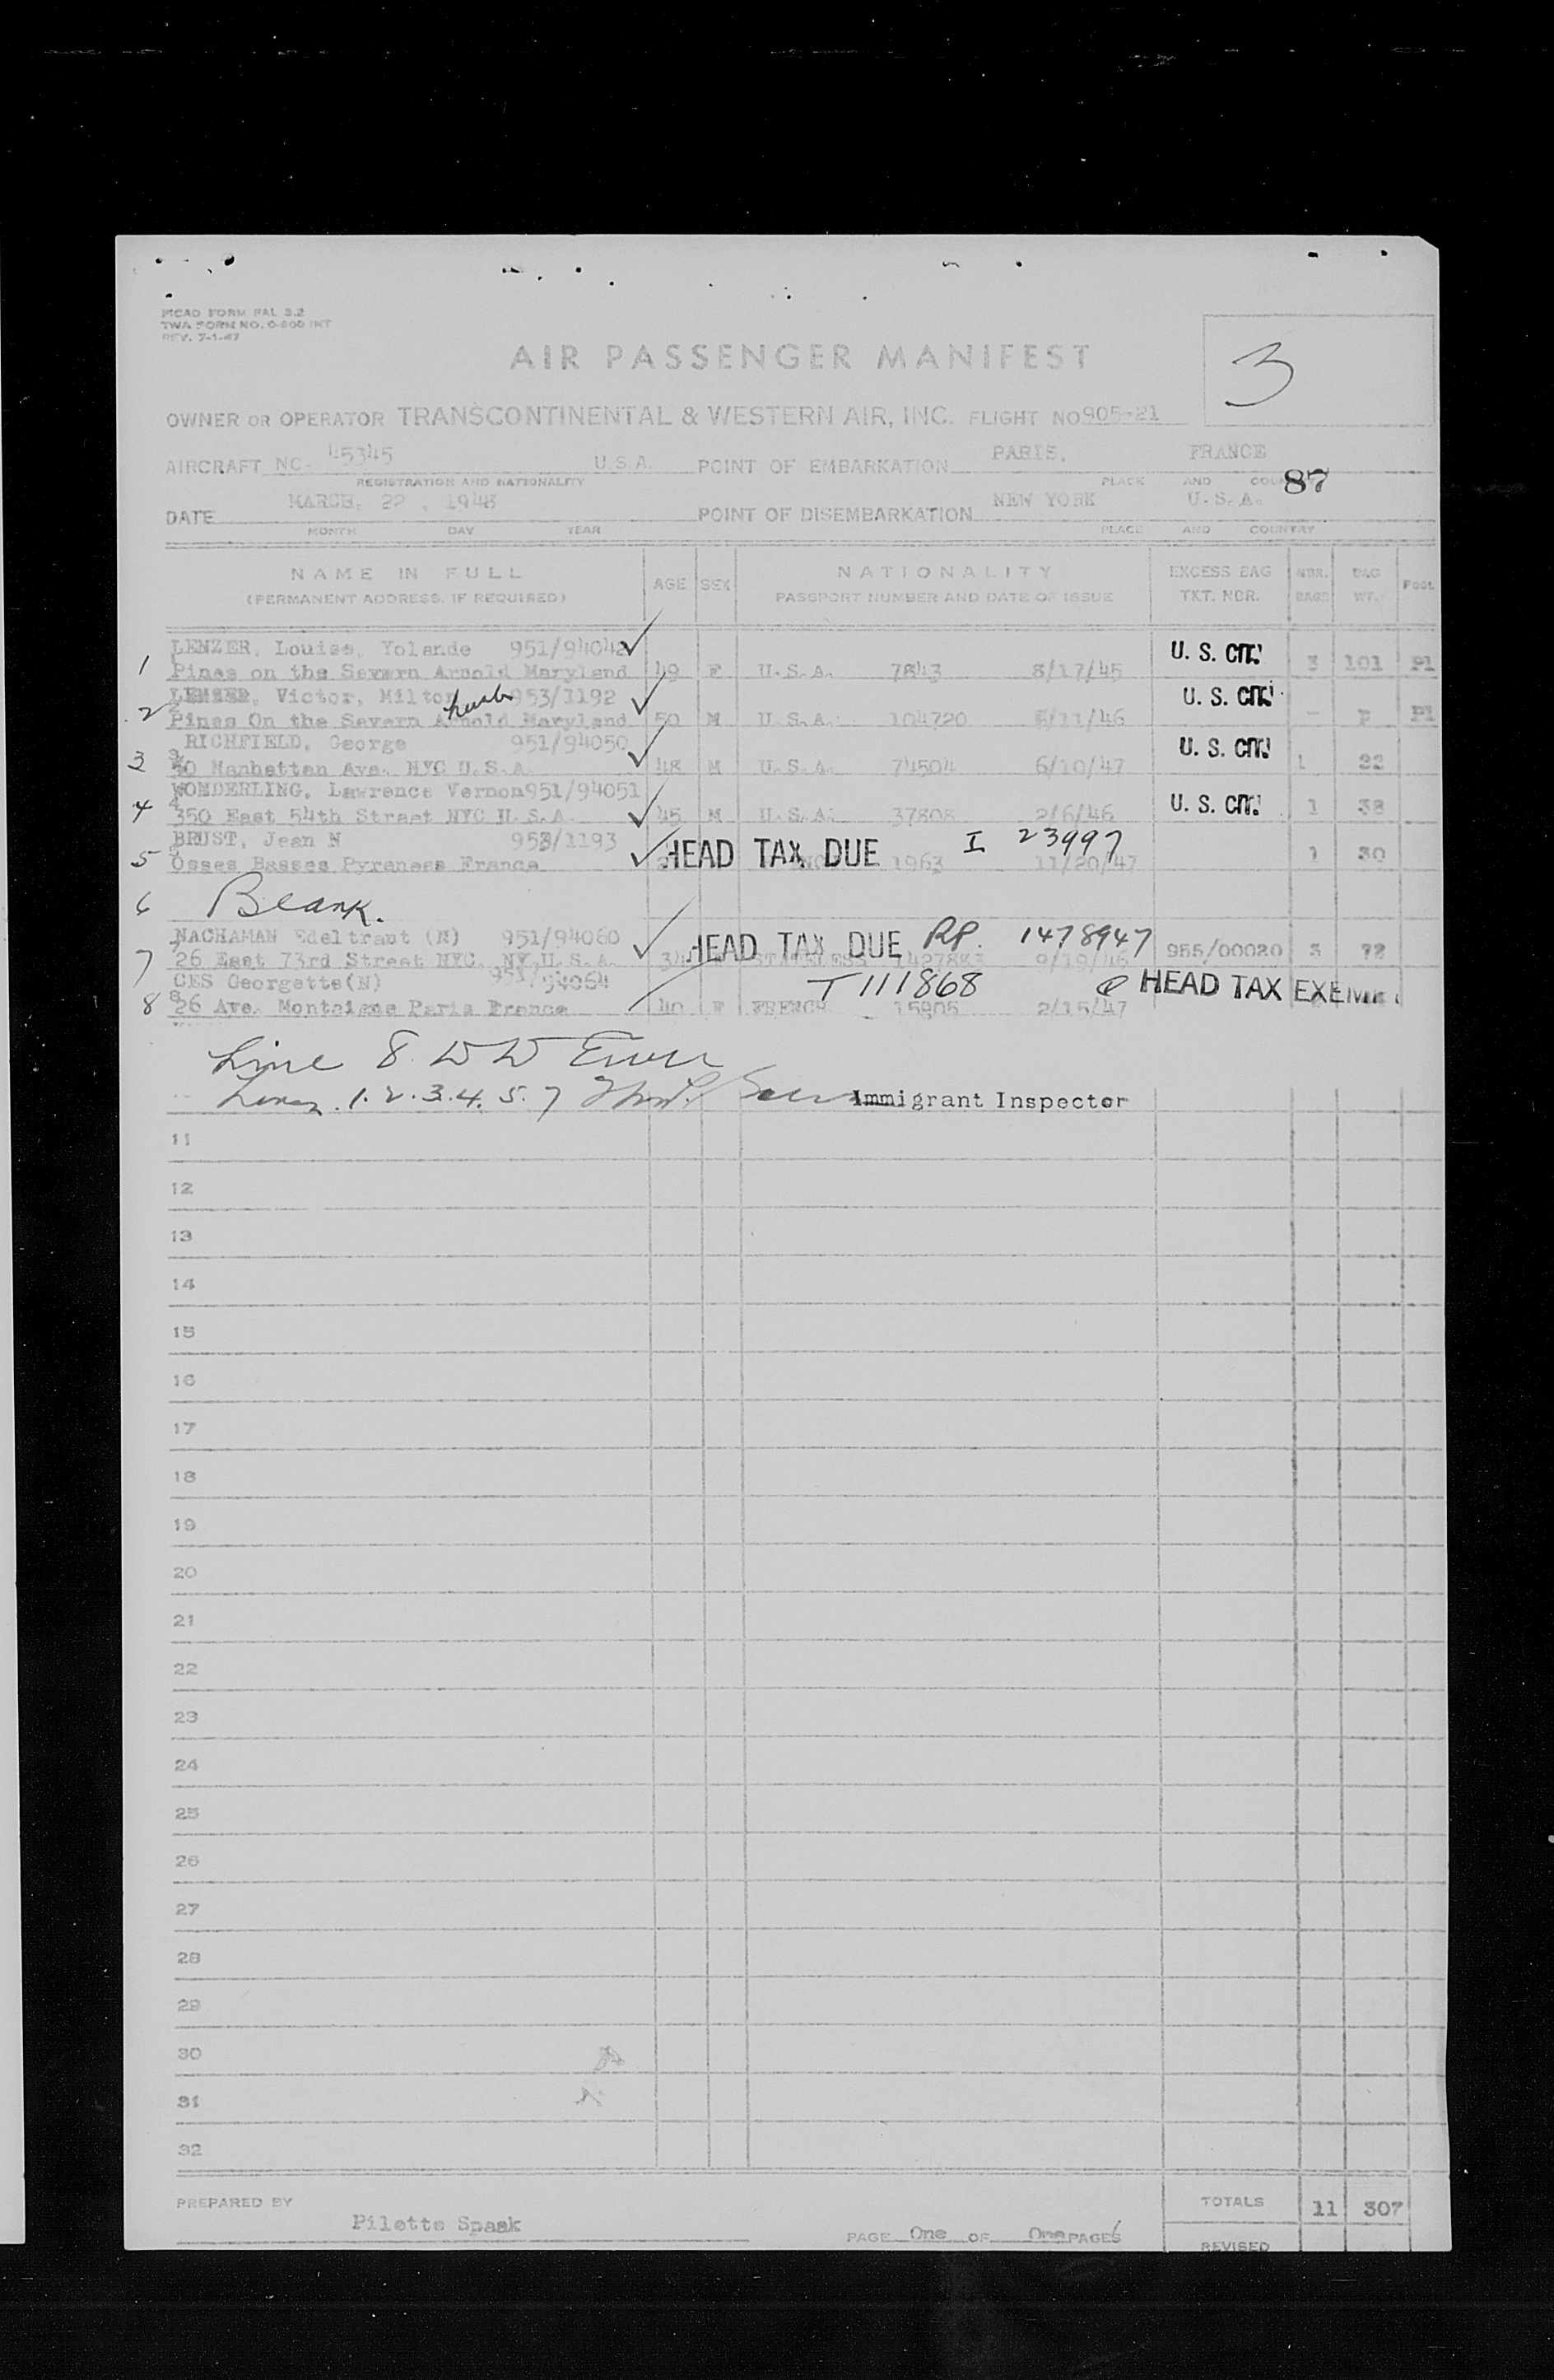 MCAD FORM PAL 3.2
TWA FORM NO. O-800 INT
REV. 7-1-47
AIR PASSENGER MANIFEST
3
OWNER OR OPERATOR TRANSCONTINENTAL & WESTERN AIR, INC. FLIGHT NO 905-21
AIRCRAFT NC- 45345 U.S.A. POINT OF EMBARKATION PARIS, FRANCE
REGISTRATION AND NATIONALITY PLACE AND 87
DATE MARCH, 22, 1948 POINT OF DISEMBARKATION NEW YORK U.S.A.
MONTH DAY YEAR PLACE AND COUNTRY
NAME IN FULL AGE SEX NATIONALITY EXCESS BAG NBR. BAG
(PERMANENT ADDRESS, IF REQUIRED) PASSPORT NUMBER AND DATE OF ISSUE TKT. NBR. BAGS WT.
LENZER, Louise, Yolande 951/94042 U. S. CIT.
1 Pines on the Severn Arnold Maryland 49 F U.S.A. 7843 8/17/45 3 101 P1
LENZER, Victor, Milton husb 953/1192 U. S. CIT.
2 Pines On the Severn Arnold Maryland 50 M U.S.A. 104720 - P P1
RICHFIELD, George 951/94050 U. S. CIT.
3 Manhattan Ave. NYC U.S.A. 48 M U.S.A. 74504 6/10/47 1 22
WONDERLING, Lawrence Vernon 951/94051 U. S. CIT.
4 350 East 54th Street NYC U.S.A. 45 M U.S.A. 37808 2/6/46 1 38
BRUST, Jean N 953/1193 HEAD TAX DUE I 23997
5 Osses Basses Pyrenees France 1963 11/20/47 1 30
6 Blank.
NACHAMAN Edeltraut (N) 951/94060 HEAD TAX DUE RP. 1478947
7 26 East 73rd Street NYC. NY U.S.A. 34 STATELESS 9/19/46 955/00020 72
CES Georgette (N) 951/94064 T 111868 HEAD TAX EXEMPT
8 26 Ave. Montaigne Paris France 40 F FRENCH 15905 2/15/47
Line 8
Lines 1.2.3.4.5.7 Immigrant Inspector
11
12
13
14
15
16
17
18
19
20
21
22
23
24
25
26
27
28
29
30
31
32
PREPARED BY Pilette Spaak
PAGE One OF One PAGES
TOTALS 11 307
REVISED